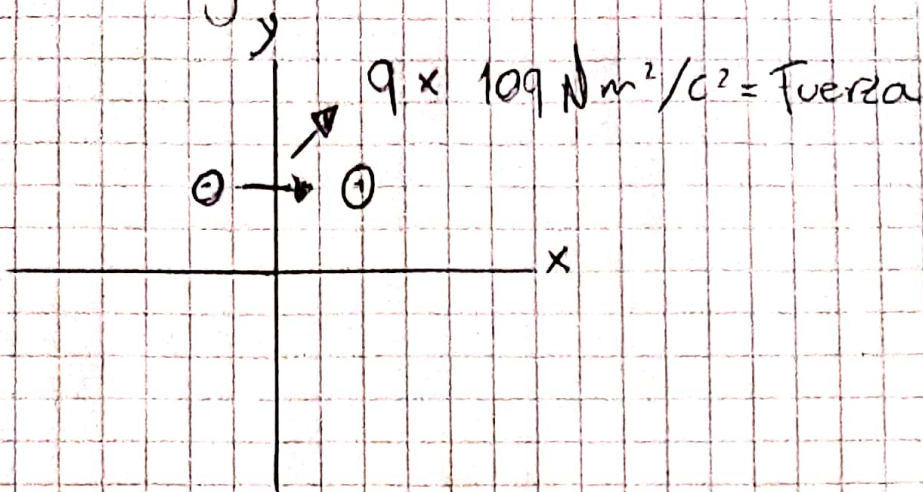 y
9 x 109 Nm²/c² = Fuerza
⊖ → ⊕
x